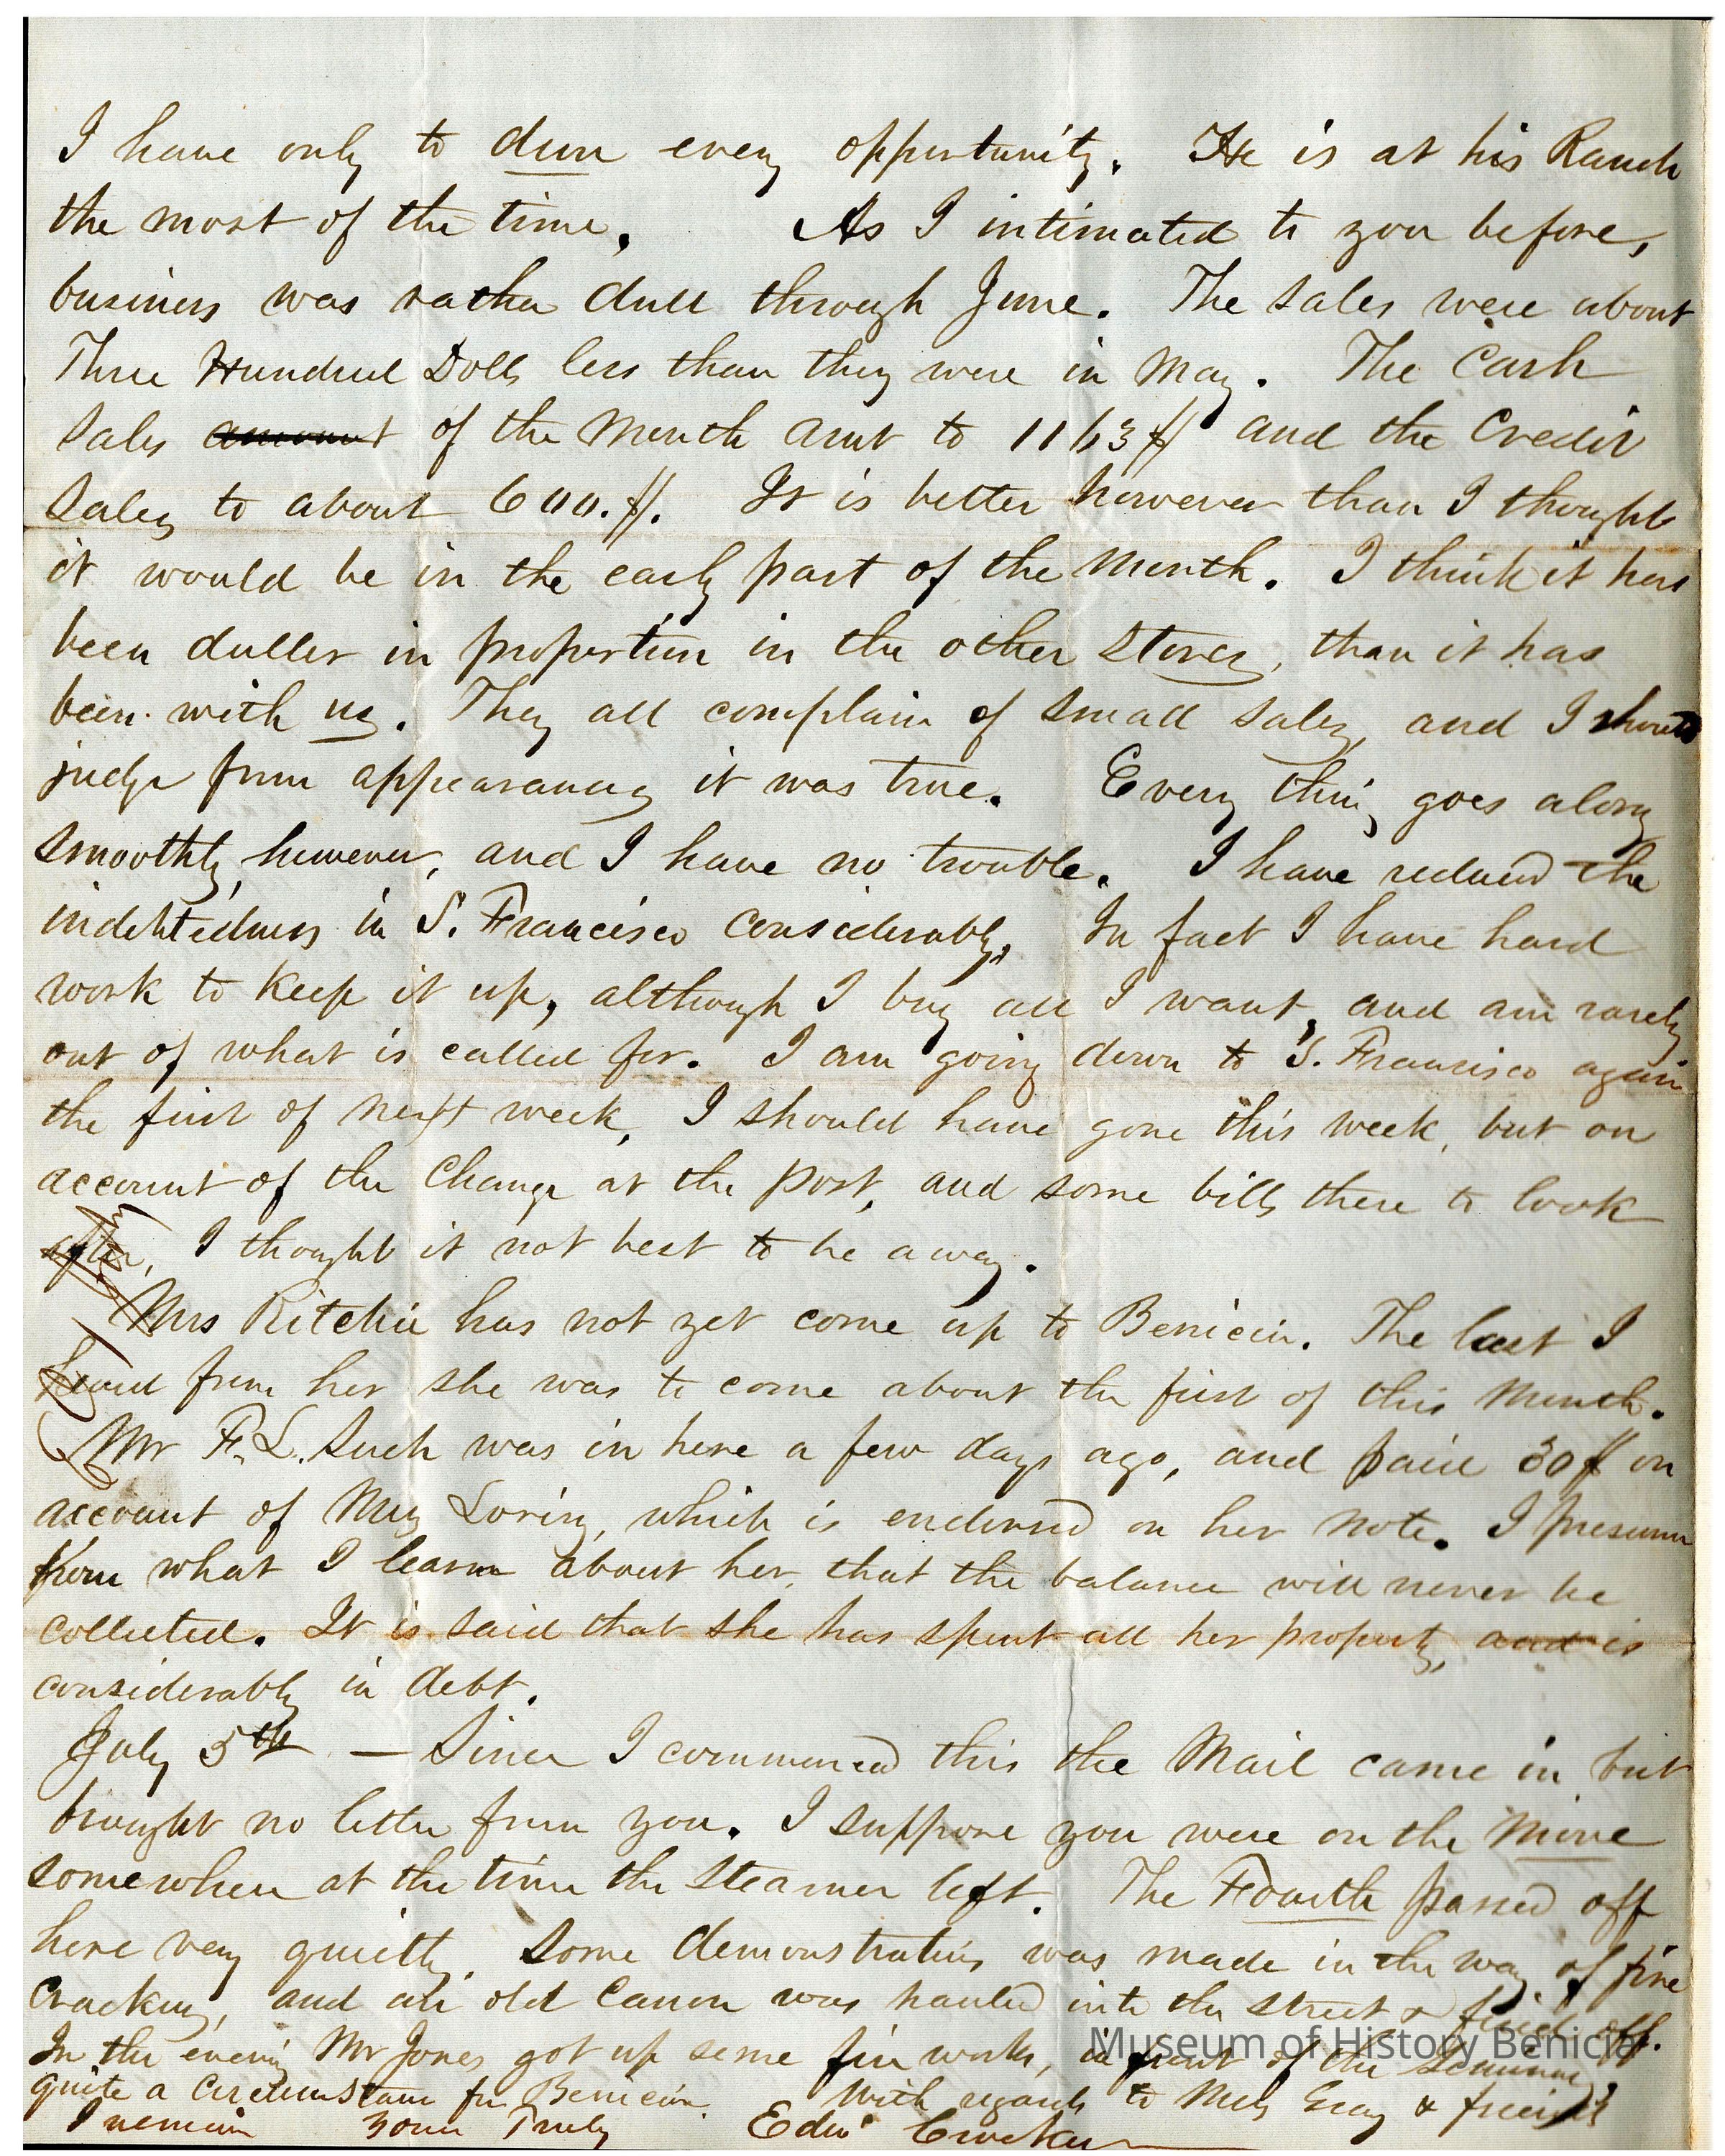 I have only to dun every opportunity. He is at his Ranch
the most of the time. As I intimated to you before,
business was rather dull through June. The sales were about
Three Hundred Dolls less than they were in May. The Cash
sales amount of the Month amt to 1163$ and the Credit
sales to about 600.$. It is better however than I thought
it would be in the early part of the Month. I think it has
been duller in proportion in the other stores, than it has
been with us. They all complain of small sales, and I should
judge from appearances it was true. Every thing goes along
smoothly, however, and I have no trouble. I have reduced the
indebtedness in S. Francisco considerably. In fact I have hard
work to keep it up, although I buy all I want, and am rarely
out of what is called for. I am going down to S. Francisco again
the first of next week, I should have gone this week, but on
account of the Change at the post, and some bills there to look
after, I thought it not best to be away.
Mrs Ritchie has not yet come up to Benicia. The last I
heard from her she was to come about the first of this Month.
Mr F. L. Such was in here a few days ago, and paid 30$ on
account of Mrs Loring, which is endorsed on her note. I presume
from what I learn about her, that the balance will never be
collected. It is said that she has spent all her property, and is
considerably in debt.
July 5th — Since I commenced this the Mail came in but
brought no letter from you. I suppose you were on the move
somewhere at the time the steamer left. The Fourth passed off
here very quietly. Some demonstration was made in the way of fire
crackers, and an old Canon was hauled into the street & fired off.
In the evening Mr Jones got up some fire works, in front of the Seminary,
quite a circumstance for Benicia. With regards to Mrs Gray & friends
I remain Your Truly Edw Crocker
Museum of History Benicia